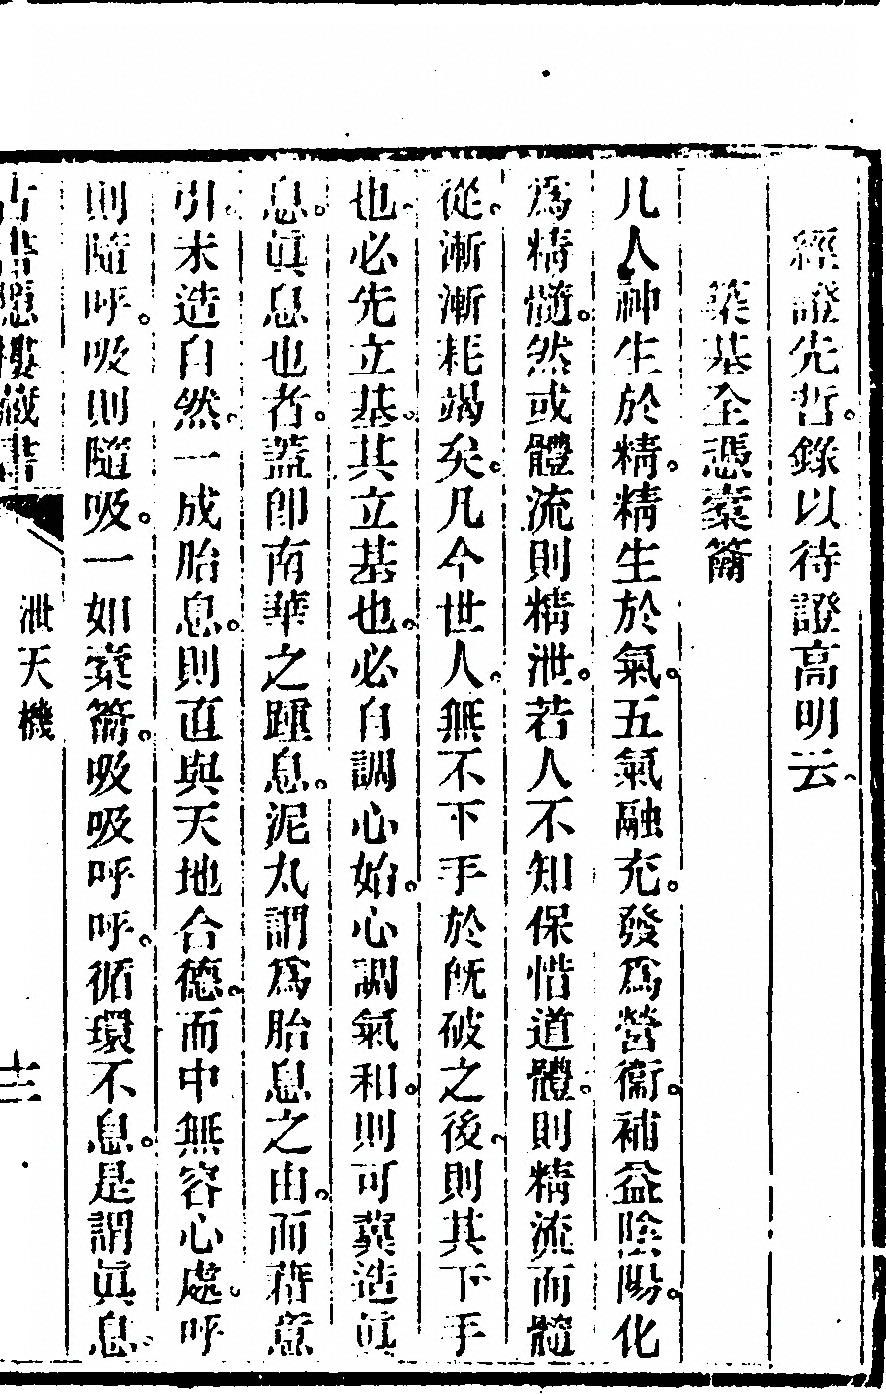 經證先哲。錄以待證高明云。
築基全憑橐籥
凡人神生於精。精生於氣。五氣融充。發爲營衞。補益陰陽。化
爲精髓。然或體流則精泄。若人不知保惜道體。則精流而髓
從。漸漸耗竭矣。凡今世人。無不下手於旣破之後。則其下手
也。必先立基。其立基也。必自調心始。心調氣和。則可冀造眞
息。眞息也者。蓋卽南華之踵息。泥丸謂爲胎息之由。而藉意
引。未造自然。一成胎息。則直與天地合德。而中無容心處。呼
則隨呼。吸則隨吸。一如橐籥。吸吸呼呼。循環不息。是謂眞息。
古書隱樓藏書
泄天機
三